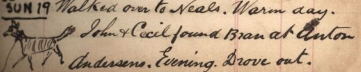 SUN 19 Walked over to Neals. Warm day.
John & Cecil found Bran at Anton
Andersens. Evening. Drove out.